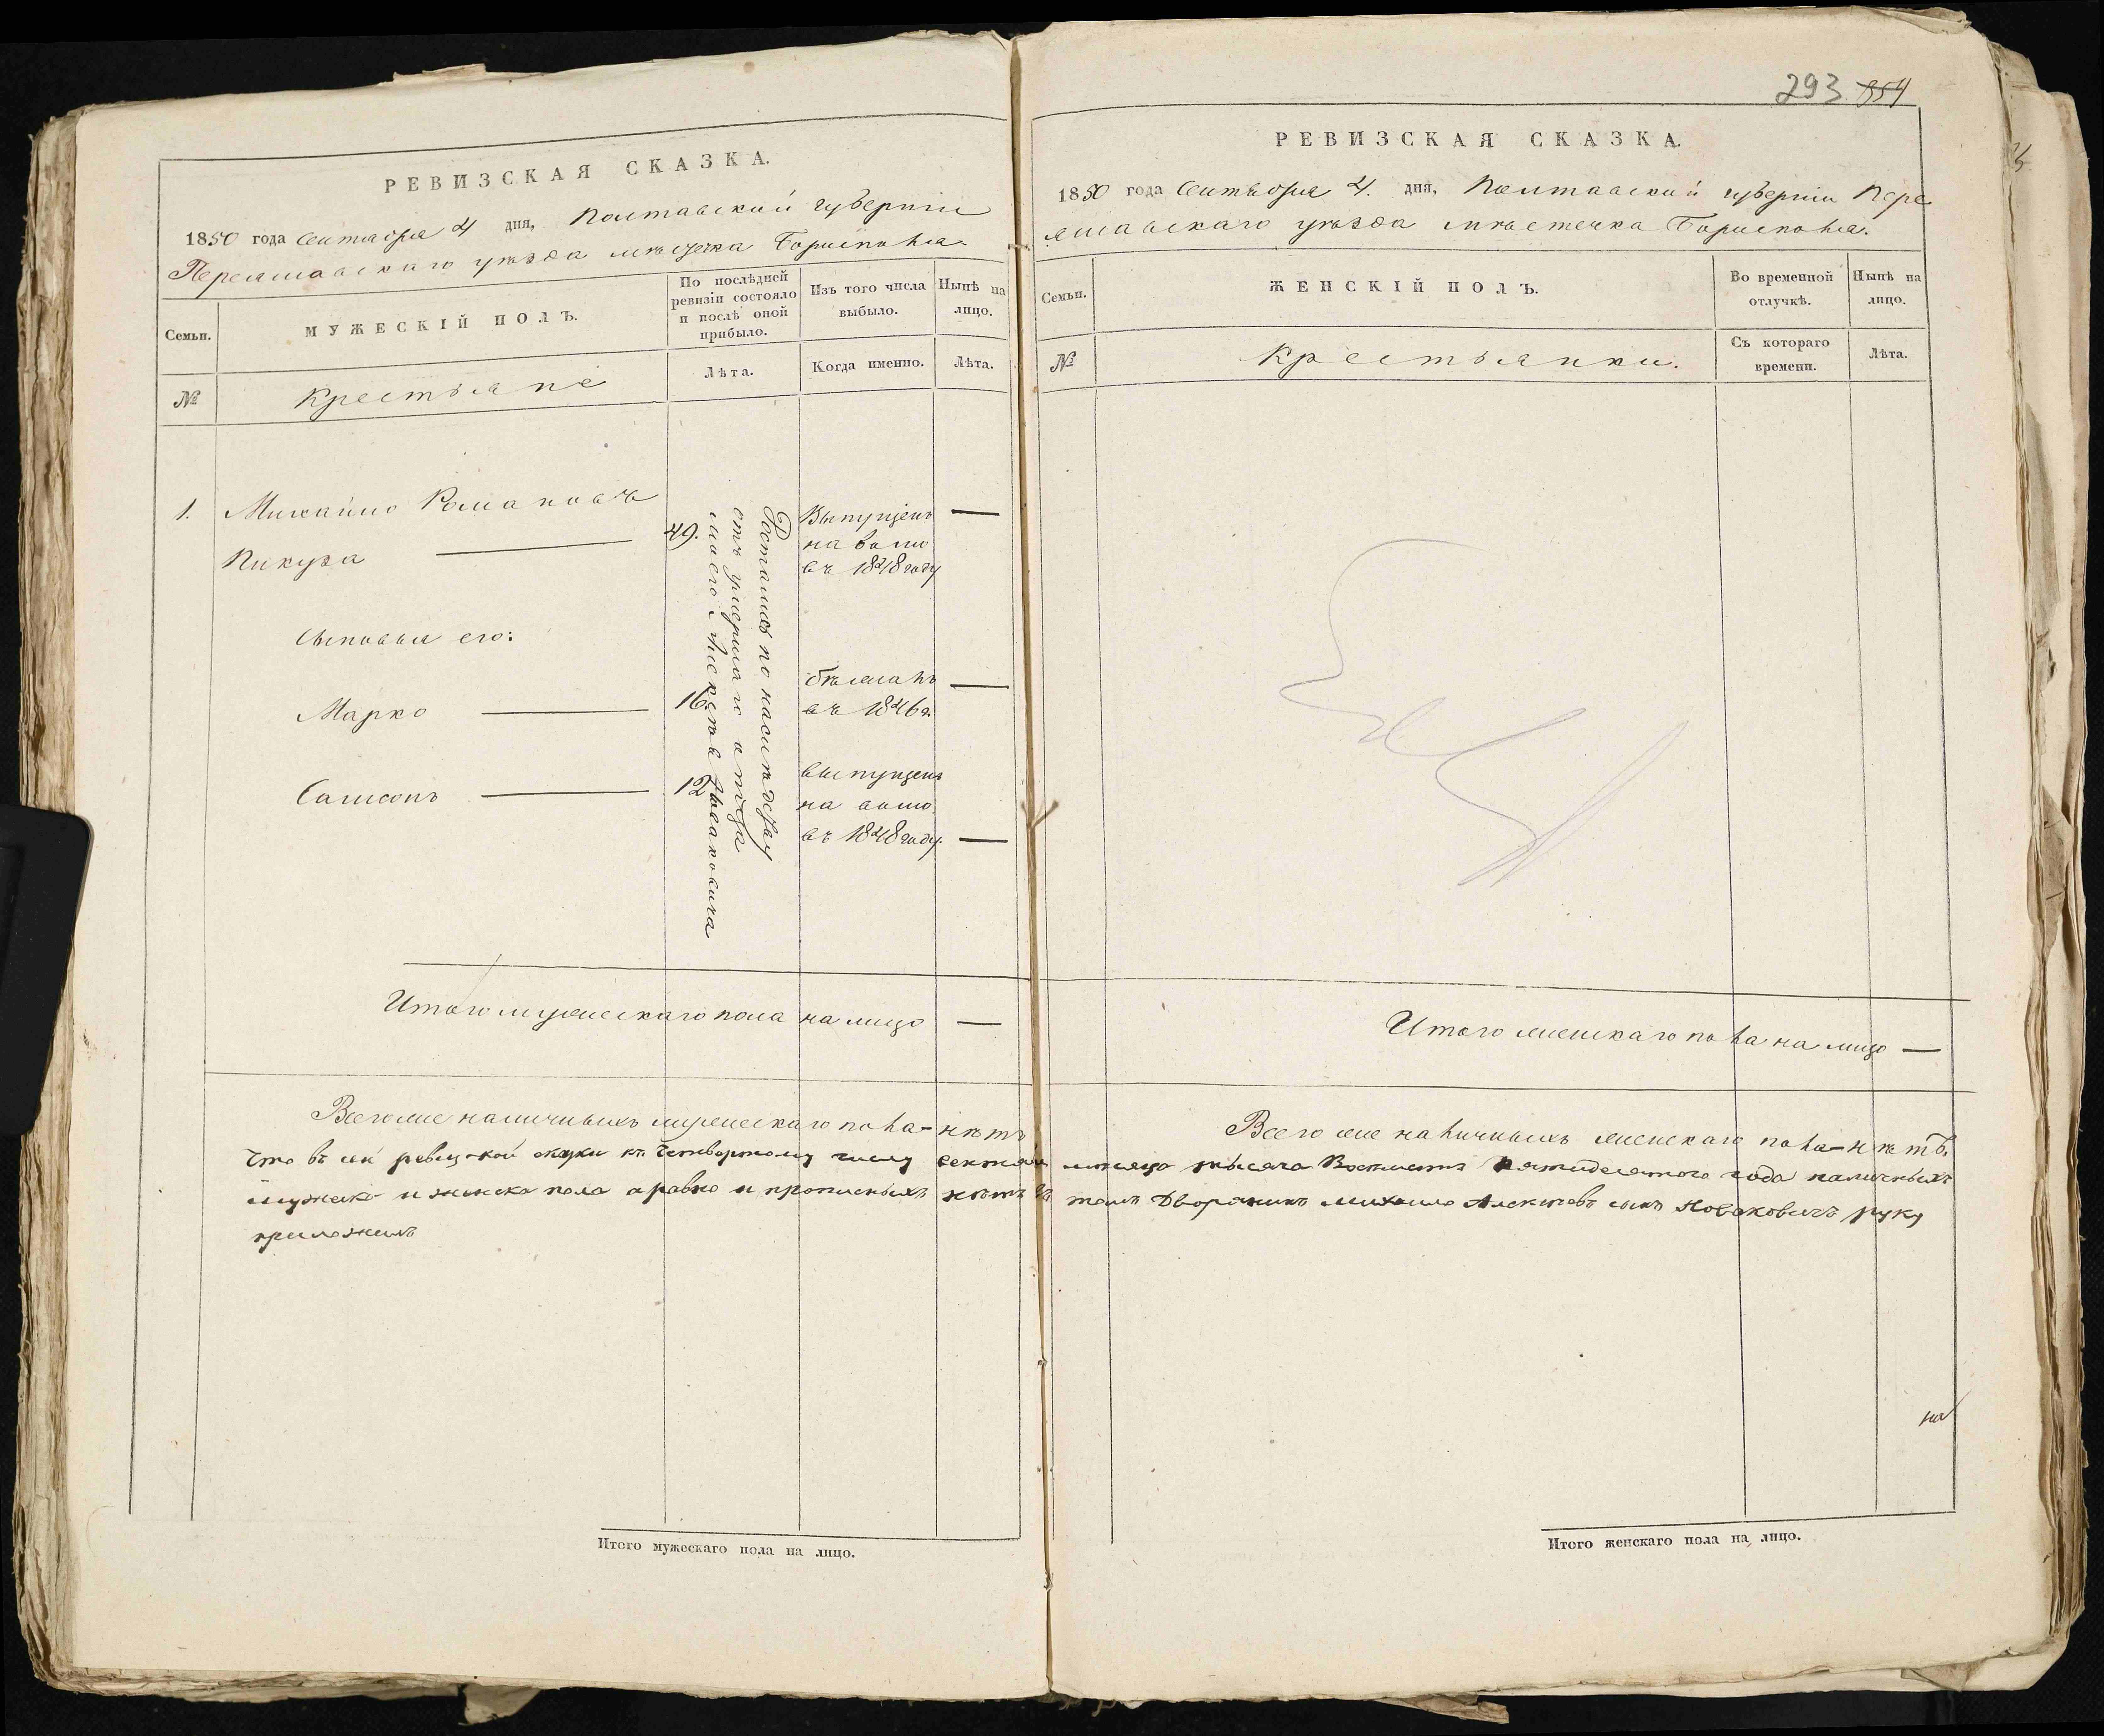 РЕВИЗСКАЯ СКАЗКА.
1850 года Сентября 4 дня, Полтавской губерніи
Переяславскаго уѣзда мѣстечка Борисполя.
Семьи.
МУЖЕСКІЙ ПОЛЪ.
По послѣдней ревизіи состояло и послѣ оной прибыло.
Изъ того числа выбыло.
Нынѣ на лицо.
№
Крестьяне
Лѣта.
Когда именно.
Лѣта.
1. Михайло Романовъ
Пикуза
49.
Выпущенъ
на волю
въ 1848 году
—
Сыновья его:
Марко
16.
бѣжалъ
въ 1846 г.
—
Самсонъ
12
выпущенъ
на волю
въ 1848 году.
—
Достались по наслѣдству
отъ умершаго отца
моего Алексѣя Новаковича
Итого мужескаго пола на лицо —
Всего же наличныхъ мужескаго пола - нѣтъ
Итого мужескаго пола на лицо.
293 854
РЕВИЗСКАЯ СКАЗКА.
1850 года Сентября 4. дня, Полтавской губерніи Пере
яславскаго уѣзда мѣстечка Борисполя.
Семьи.
ЖЕНСКІЙ ПОЛЪ.
Во временной отлучкѣ.
Нынѣ на лицо.
№
Крестьянки.
Съ котораго времени.
Лѣта.
Итого женскаго пола на лицо —
Всего же наличныхъ женскаго пола - нѣтъ.
Что въ сей ревизской скаски къ четвортому числу сентября мѣсяца тысяча Восемсотъ пятидесятого года наличныхъ
мужеска и женска пола а равно и прописныхъ нѣтъ въ томъ Дворянинъ Михаило Алексѣевъ сынъ Новаковичъ руку
приложилъ
Итого женскаго пола на лицо.